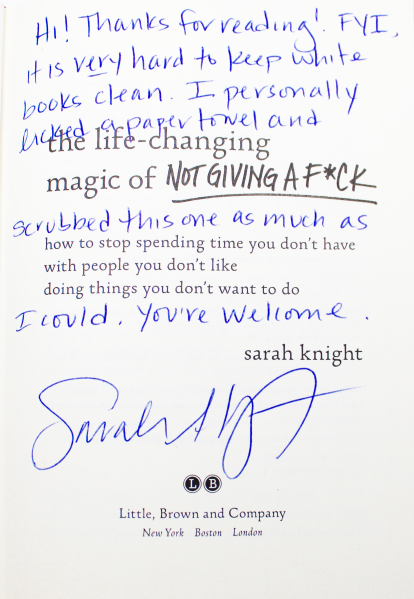 Hi! Thanks for reading! FYI,
it is very hard to keep white
books clean. I personally
licked a paper towel and
the life-changing
magic of NOT GIVING A F*CK
scrubbed this one as much as
how to stop spending time you don't have
with people you don't like
doing things you don't want to do
I could. You're Welcome.
sarah knight
Sarah Knight
L B
Little, Brown and Company
New York Boston London